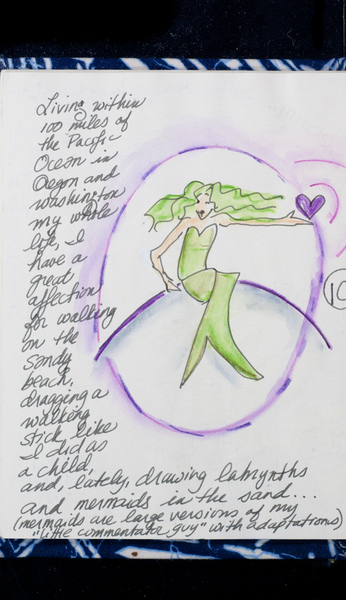 Living within
100 miles of
the Pacific
Ocean in
Oregon and
washington
my whole
life, I
have a
great
affection
for walking
on the
sandy
beach,
dragging a
walking
stick like
I did as
a child,
and, lately, drawing labrynths
and mermaids in the sand...
(mermaids are large versions of my
"little commentator guy" with adaptations)
10